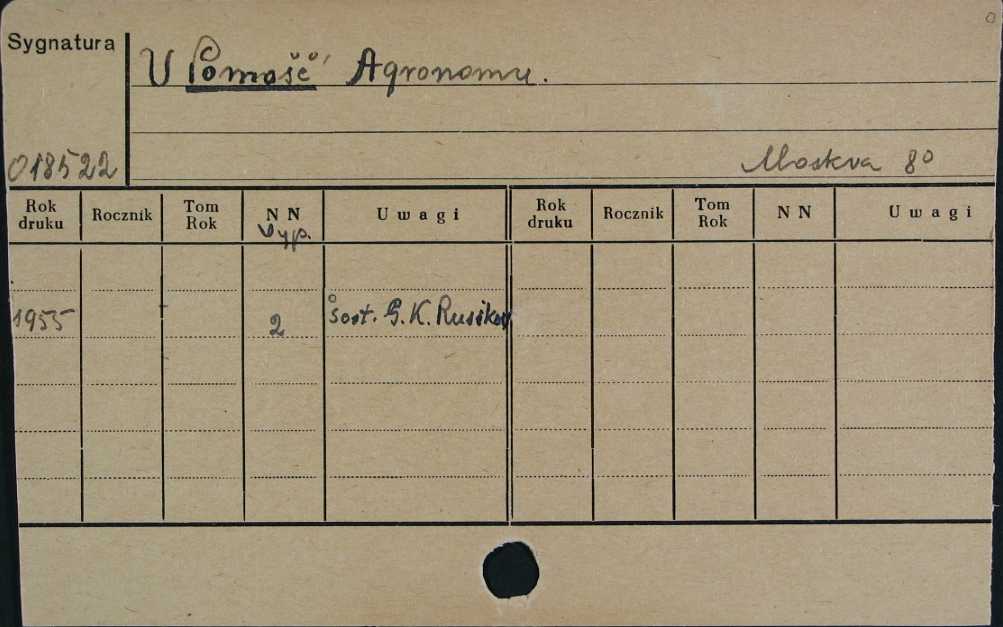 Sygnatura
V Pomošč' Agronomu.
018522
Moskva 8º
Rok druku Rocznik Tom Rok NN Uwagi Rok druku Rocznik Tom Rok NN Uwagi
Vyp.
1955 2 Sost. G. K. Rusikov